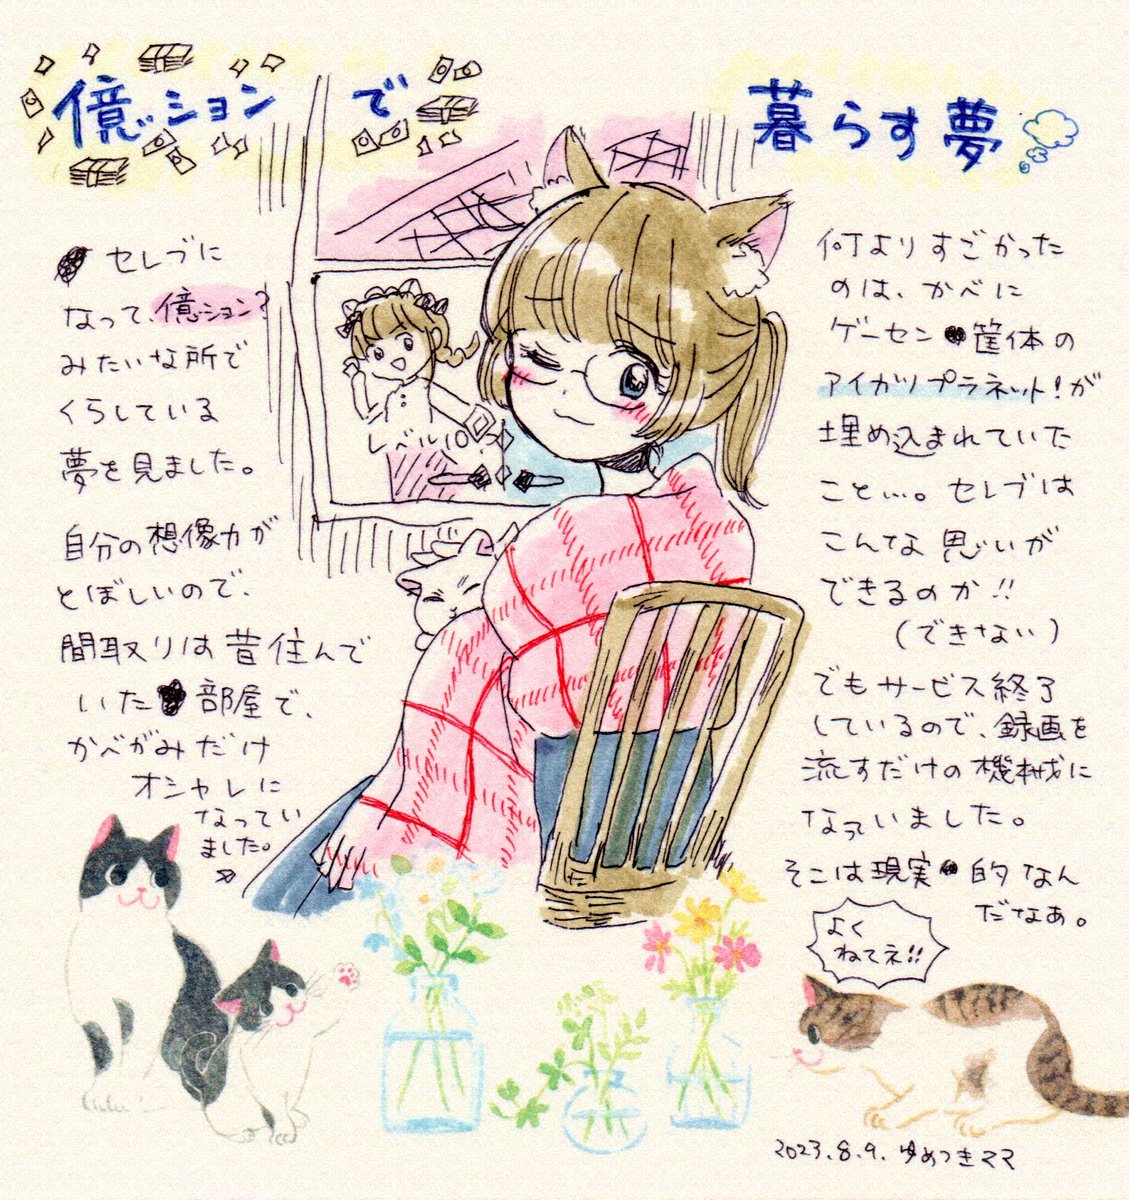 億ッションで暮らす夢
セレブに
なって、億ション?
みたいな所で
くらしている
夢を見ました。
自分の想像力が
とぼしいので、
間取りは昔住んで
いた部屋で、
かべがみだけ
オシャレに
なってい
ました。
レベル10
何よりすごかった
のは、かべに
ゲーセン筐体の
アイカツプラネット!が
埋め込まれていた
こと…。セレブは
こんな思いが
できるのか!!
(できない)
でもサービス終了
しているので、録画を
流すだけの機械に
なっていました。
そこは現実的なん
だなぁ。
よく
ねてネ!!
2023.8.9.ゆめつきママ